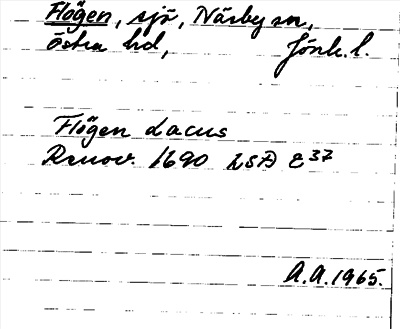 Flögen, sjö, Näsby sn,
Östra hd, Jönk. l.
Flögen lacus
Renov. 1690 LSA E 37
A.A. 1965.